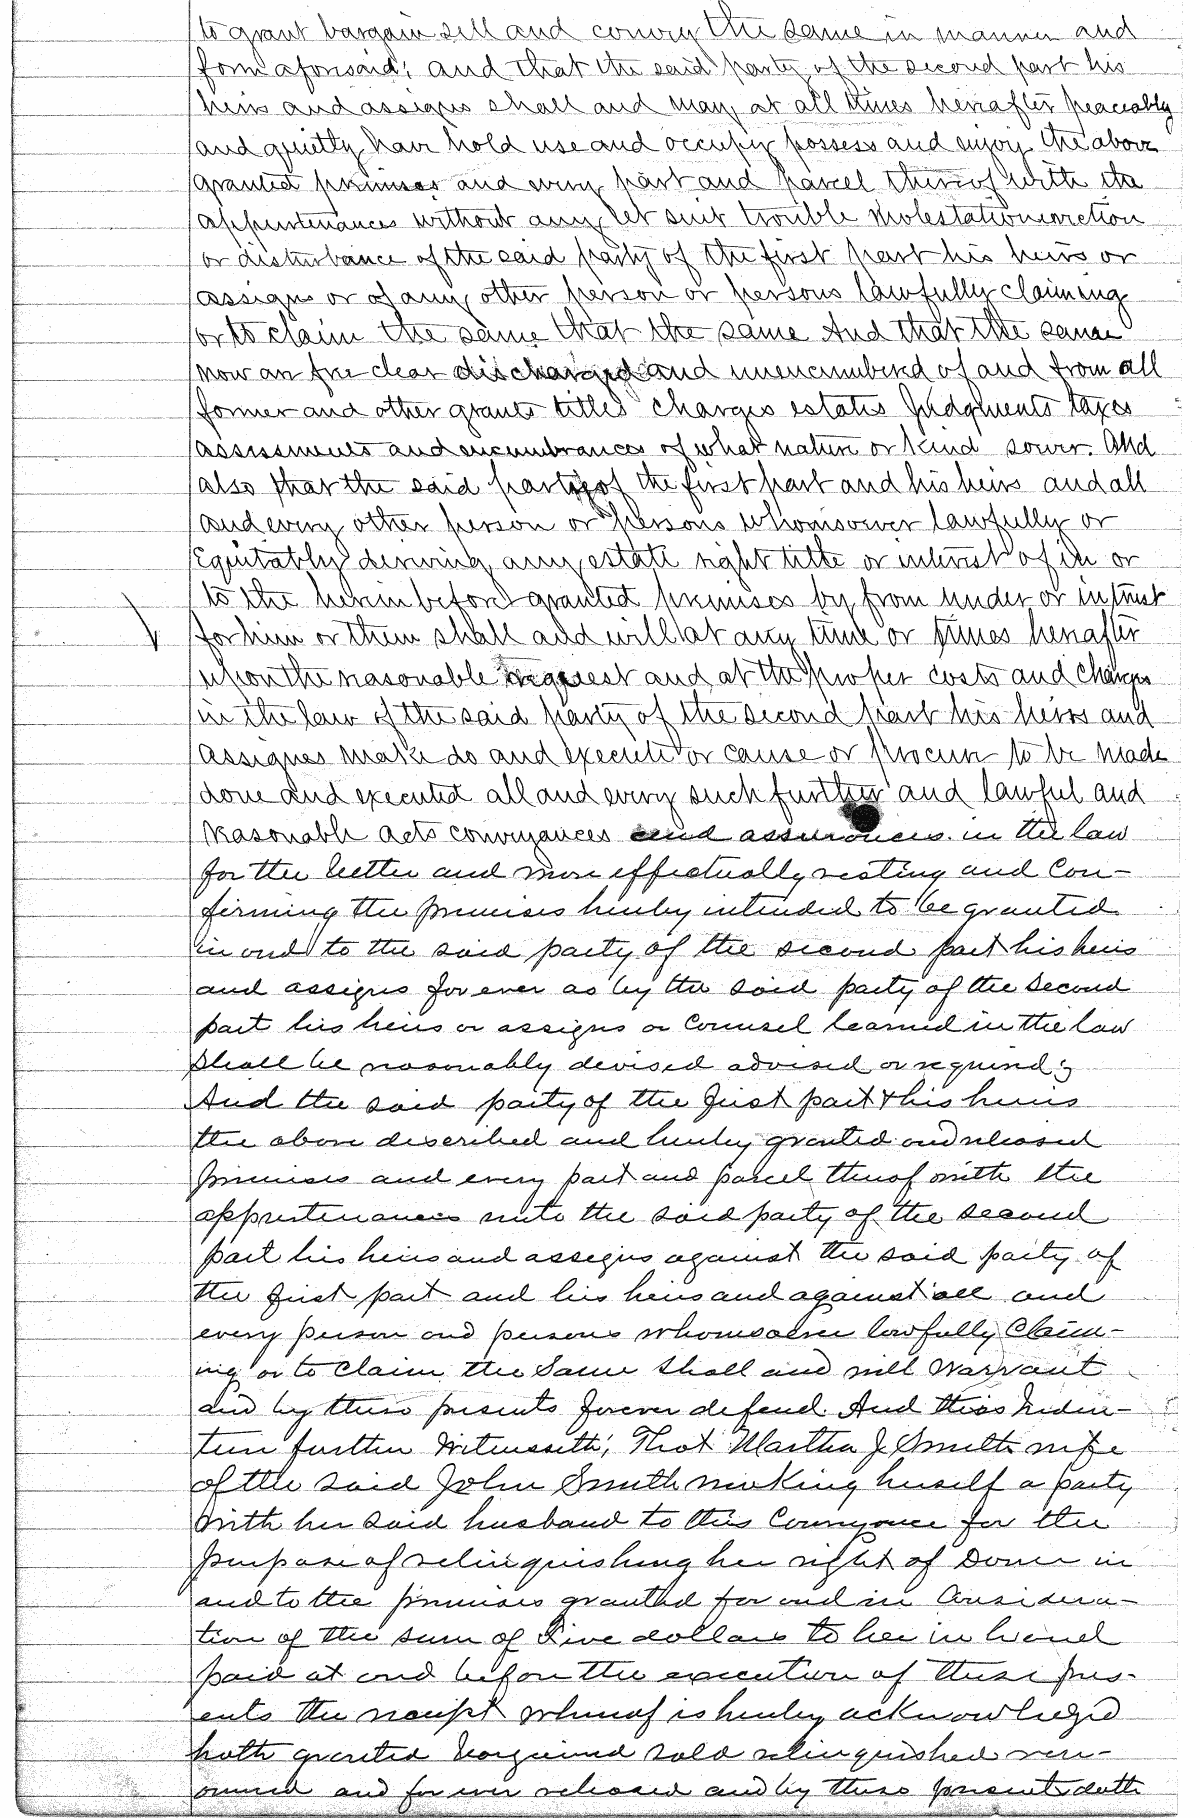 to grant bargain sell and convey the same in manner and
form aforesaid; and that the said party of the second part his
heirs and assigns shall and may at all times hereafter peaceably
and quietly have hold use and occupy possess and enjoy the above
granted premises and every part and parcel thereof with the
appurtenances without any let suit trouble molestation
or disturbance of the said party of the first part his heirs or
assigns or of any other person or persons lawfully claiming
or to claim the same that the same And that the same
now are free clear discharged and unencumbered of and from all
former and other grants titles charges estates Judgments taxes
assessments and encumbrances of what nature or kind soever. And
also that the said party of the first part and his heirs and all
and every other person or persons whomsoever lawfully or
Equitably deriving any estate right title or interest of in or
to the herein before granted premises by from under or in trust
for him or them shall and will at any time or times hereafter
upon the reasonable request and at the proper costs and charges
in the law of the said party of the second part his heirs and
assignes make do and execute or cause or procure to be made
done and executed all and every such further and lawful and
Reasonable acts conveyances and assurances in the law
for the better and more effectually vesting and Con-
firming the premises hereby intended to be granted
in and to the said party of the second part his heirs
and assigns for ever as by the said party of the second
part his heirs or assigns or Counsel learned in the law
shall be reasonably devised advised or required;
And the said party of the first part & his heirs
the above described and hereby granted and released
premises and every part and parcel thereof with the
appurtenances unto the said party of the second
part his heirs and assigns against the said party of
the first part and his heirs and against all and
every person and persons whomsoever lawfully Claim-
ing or to Claim the Same Shall and will Warrant
and by these presents forever defend. And this Inden-
ture further Witnesseth; That Martha J Smith wife
of the said John Smith making herself a party
with her said husband to this Conveyance for the
purpose of relinquishing her right of Dower in
and to the premises granted for and in Considera-
tion of the sum of Five dollars to her in hand
paid at and before the execution of these pres-
ents the receipt whereof is hereby acknowledged
hath granted bargained sold relinquished ren-
ounced and for ever released and by these presents doth